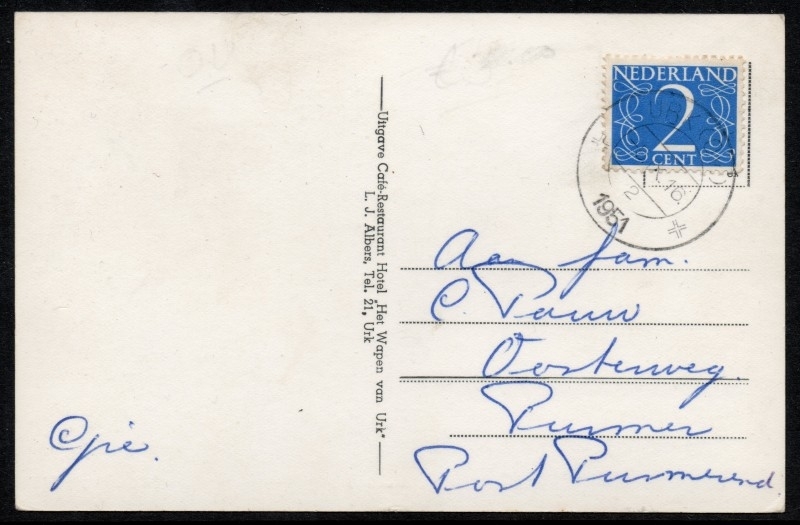 NEDERLAND
2
CENT
URK
16
2
1951
Uitgave Café-Restaurant Hotel „Het Wapen van Urk”
L. J. Albers, Tel. 21, Urk
Aan fam.
C. Pauw
Oosterweg.
Purmer
Post Purmerend
Cpie.